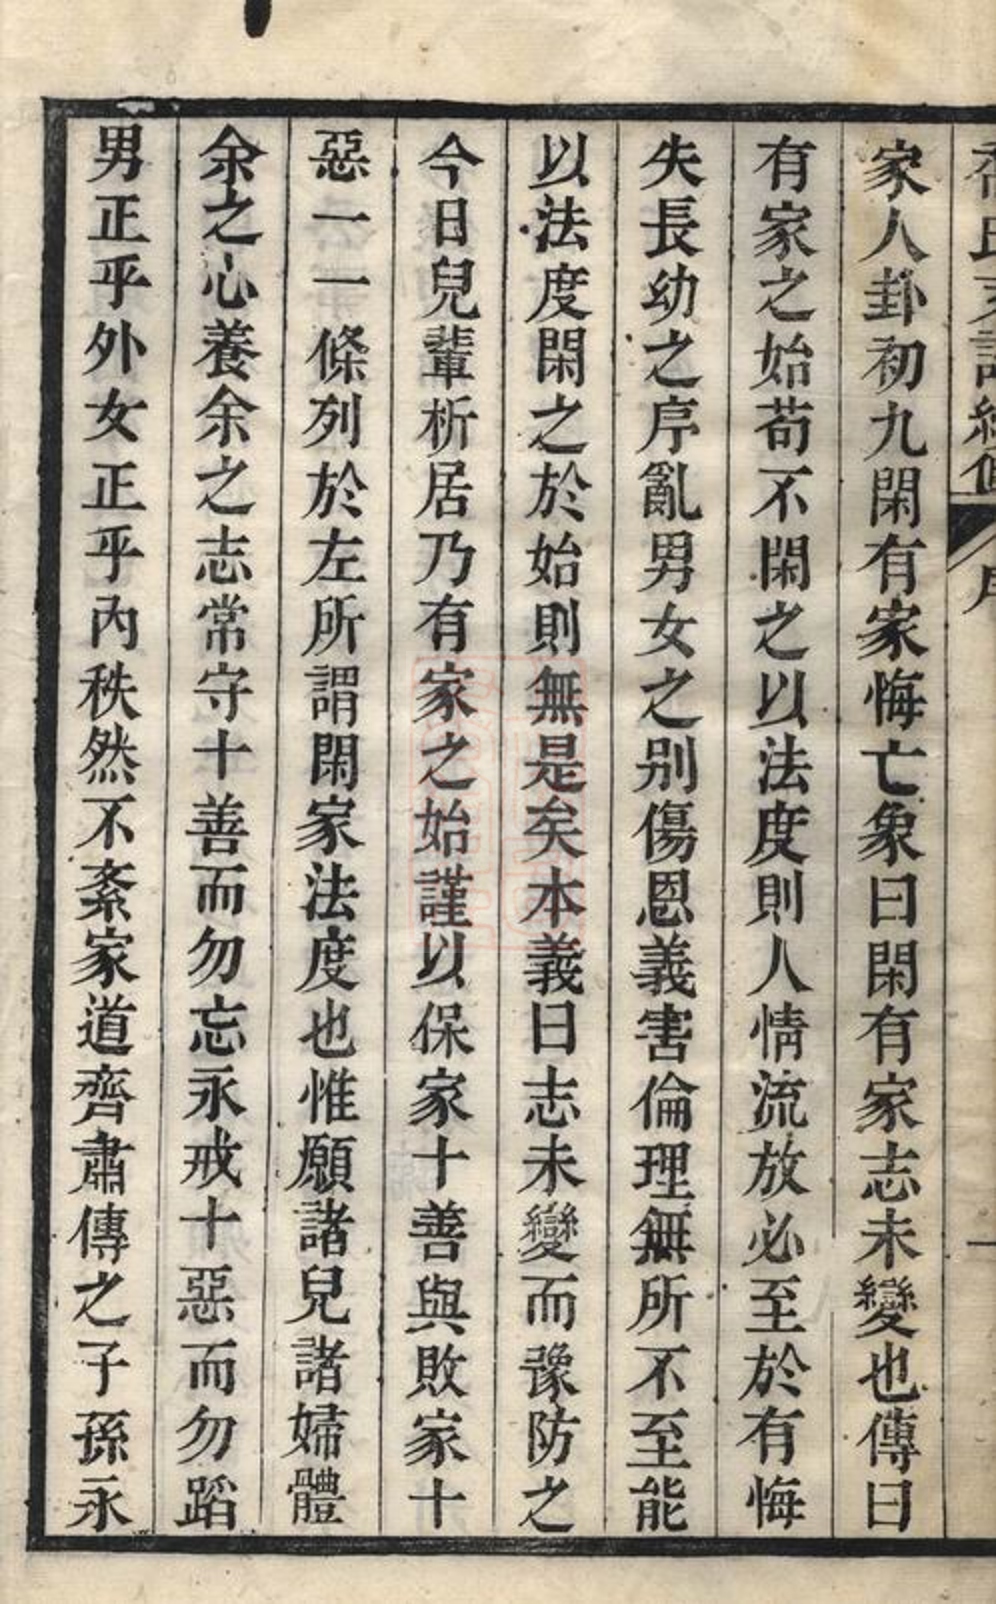 家人卦初九閑有家悔亡象曰閑有家志未變也傳曰
有家之始苟不閑之以法度則人情流放必至於有悔
失長幼之序亂男女之别傷恩義害倫理無所不至能
以法度閑之於始則無是矣本義曰志未變而豫防之
今日兒輩析居乃有家之始謹以保家十善與敗家十
惡一一條列於左所謂閑家法度也惟願諸兒諸婦體
余之心養余之志常守十善而勿忘永戒十惡而勿蹈
男正乎外女正乎內秩然不紊家道齊肅傳之子孫永